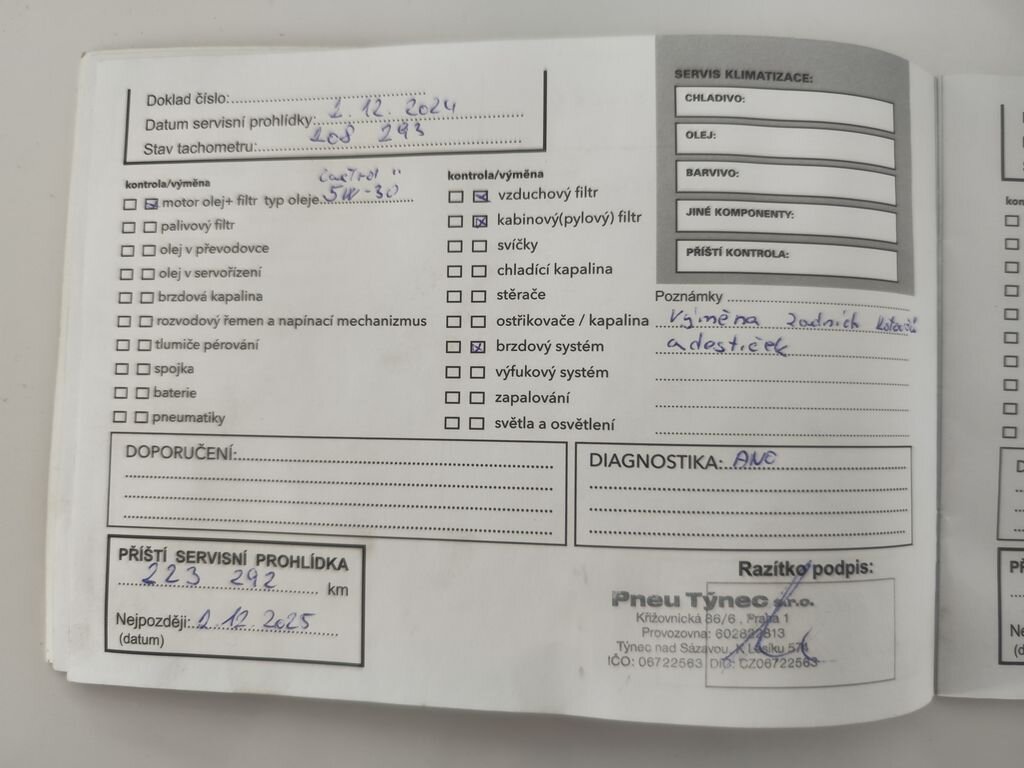 Doklad číslo:
Datum servisní prohlídky: 1.12.2024
Stav tachometru: 208 293
kontrola/výměna
castrol
motor olej+ filtr typ oleje 5W-30
palivový filtr
olej v převodovce
olej v servořízení
brzdová kapalina
rozvodový řemen a napínací mechanizmus
tlumiče pérování
spojka
baterie
pneumatiky
kontrola/výměna
vzduchový filtr
kabinový(pylový) filtr
svíčky
chladící kapalina
stěrače
ostřikovače / kapalina
brzdový systém
výfukový systém
zapalování
světla a osvětlení
SERVIS KLIMATIZACE:
CHLADIVO:
OLEJ:
BARVIVO:
JINÉ KOMPONENTY:
PŘÍŠTÍ KONTROLA:
Poznámky
Výměna zadních kotoučů
a destiček
DOPORUČENÍ:
DIAGNOSTIKA: ANO
PŘÍŠTÍ SERVISNÍ PROHLÍDKA
223 292 km
Nejpozději: 1.12.2025
(datum)
Razítko podpis:
Pneu Týnec s.r.o.
Křižovnická 86/6, Praha 1
Provozovna:
Týnec nad Sázavou, K Lesíku 574
IČO: 06722563 DIČ: CZ06722563